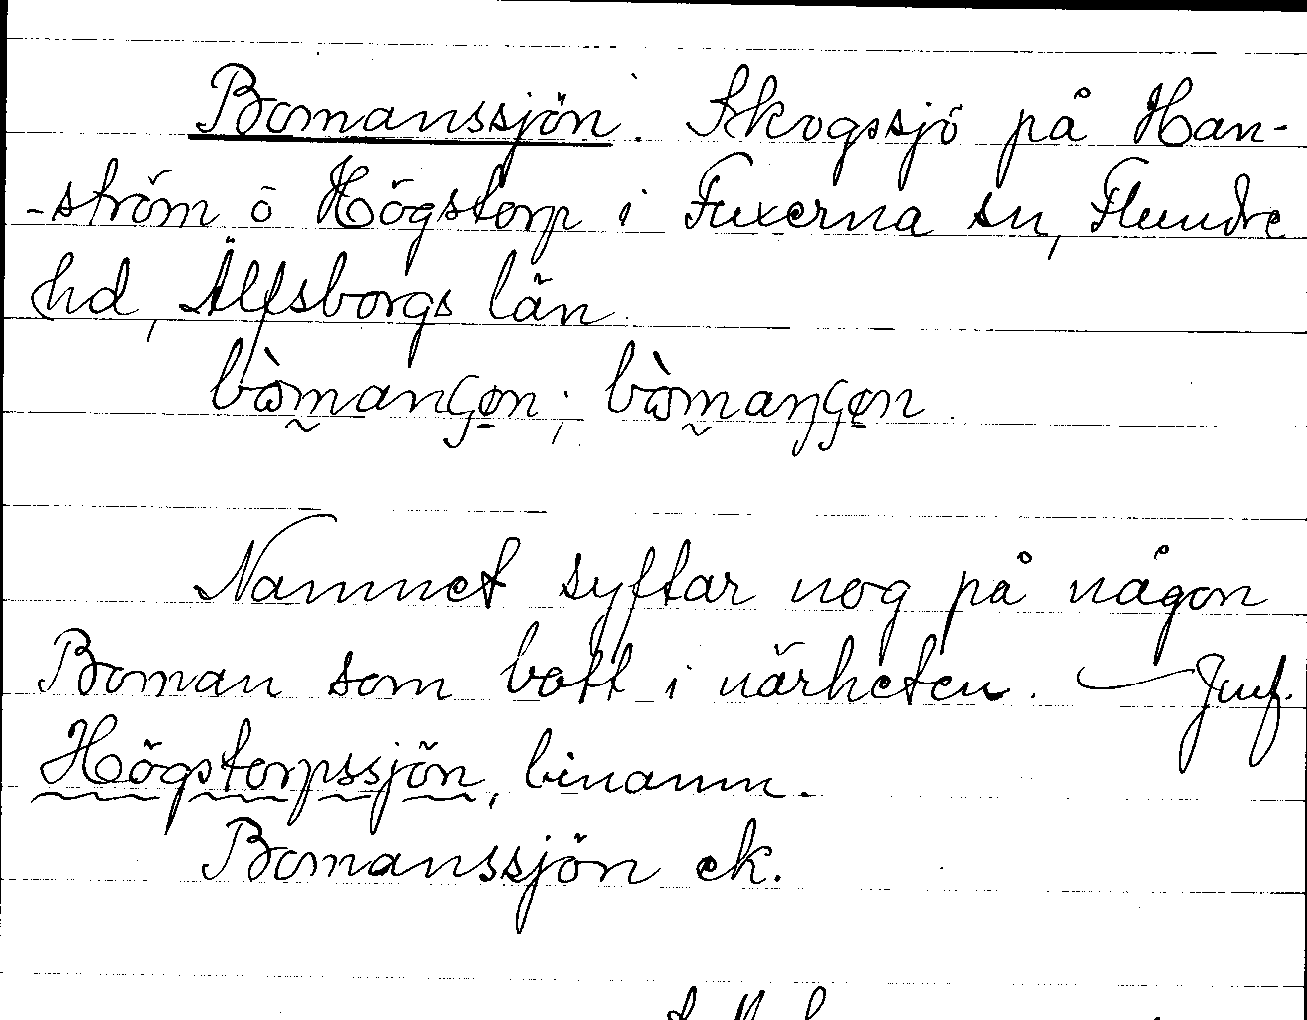 Bomanssjön. Skogssjö på Han-
-ström o Högstorp i Fuxerna sn, Flundre
hd, Älfsborgs län
Namnet syftar nog på någon
Boman som bott i närheten. — Jmf.
Högstorpssjön, binamn.
Bomanssjön ek.